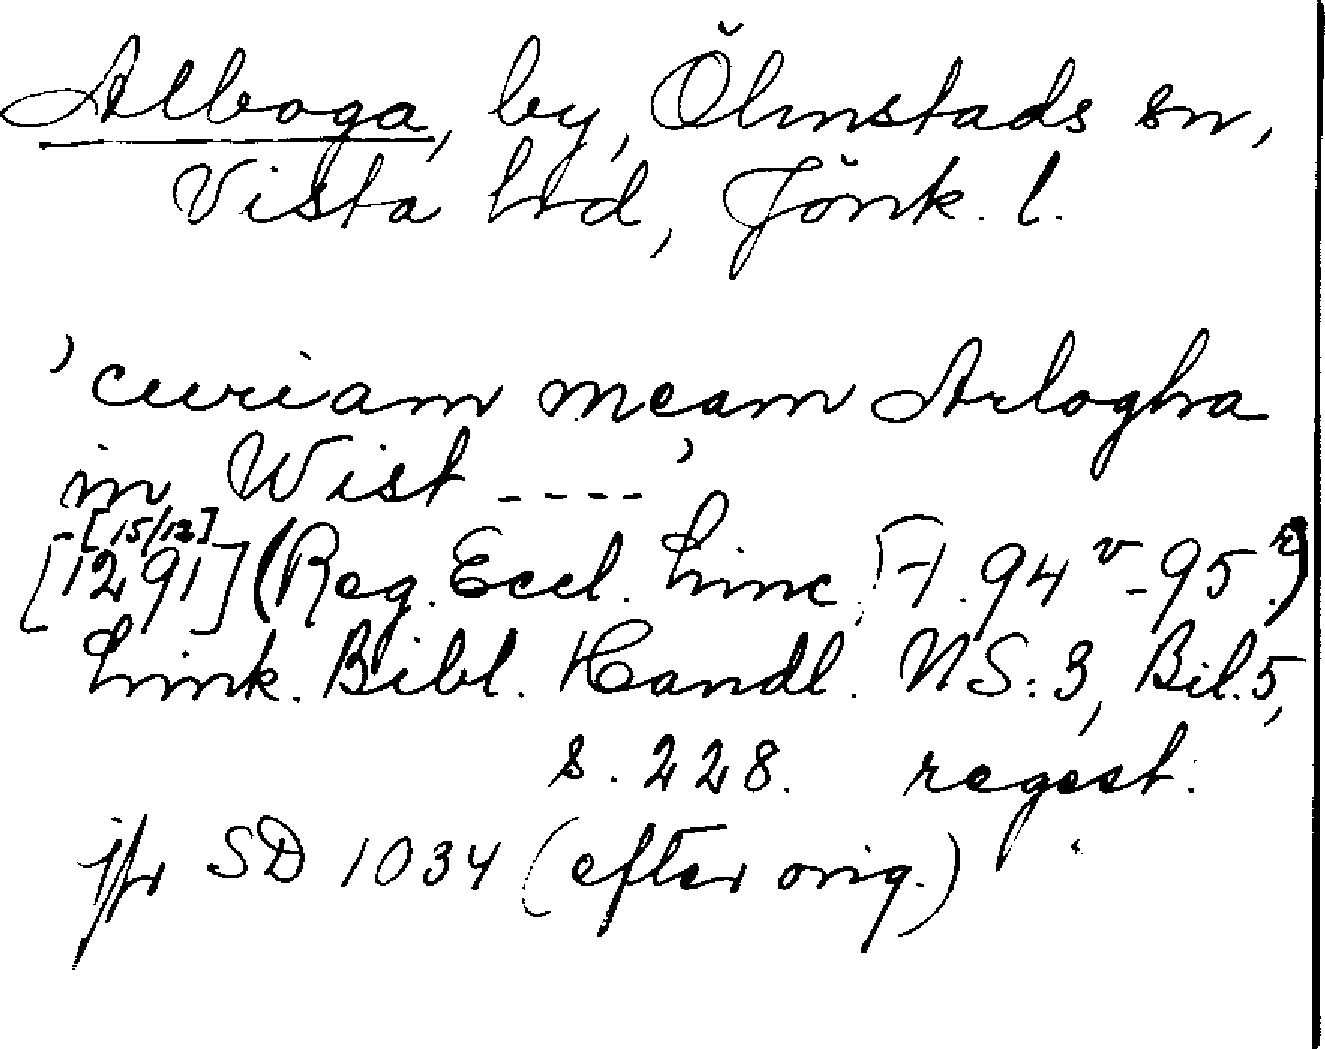 Alboga, by, Ölmstads sn,
Vista hrd, Jönk. l.
'curiam meam Arlogha
in Wist ----'
[15/12]
[1291] (Reg. Eccl. Linc. Fl. 94v-95r.)
Link. Bibl. Handl. NS:3, Bil.5,
s. 228. regest.
jfr SD 1034 (efter orig.)